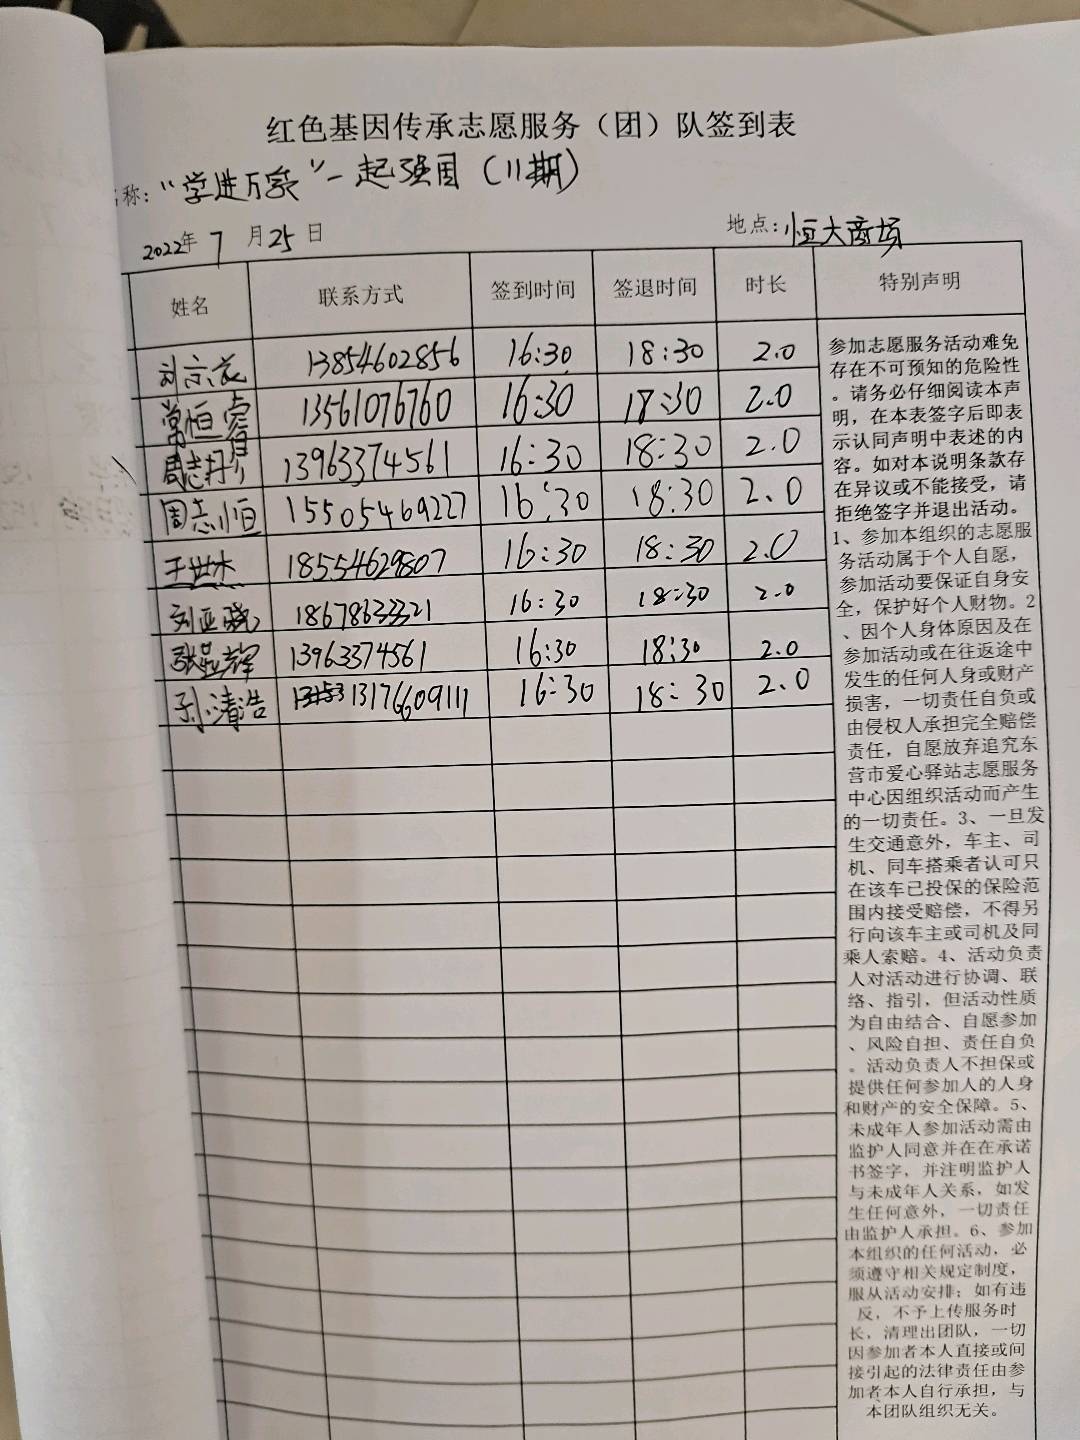 红色基因传承志愿服务（团）队签到表
称：“学进万家”一起强国（11期）
2022年 7 月 25 日 地点：恒大商场
姓名 联系方式 签到时间 签退时间 时长 特别声明
13854602856 16:30 18:30 2.0
常恒睿 13561076760 16:30 18:30 2.0
周志丹 13963374561 16:30 18:30 2.0
周志恒 15505469227 16:30 18:30 2.0
王世木 18554629807 16:30 18:30 2.0
刘亚晓 18678633321 16:30 18:30 2.0
张益辉 13963374561 16:30 18:30 2.0
孙清浩 13176609111 16:30 18:30 2.0
参加志愿服务活动难免
存在不可预知的危险性
。请务必仔细阅读本声
明，在本表签字后即表
示认同声明中表述的内
容。如对本说明条款存
在异议或不能接受，请
拒绝签字并退出活动。
1、参加本组织的志愿服
务活动属于个人自愿，
参加活动要保证自身安
全，保护好个人财物。2
、因个人身体原因及在
参加活动或在往返途中
发生的任何人身或财产
损害，一切责任自负或
由侵权人承担完全赔偿
责任，自愿放弃追究东
营市爱心驿站志愿服务
中心因组织活动而产生
的一切责任。3、一旦发
生交通意外，车主、司
机、同车搭乘者认可只
在该车已投保的保险范
围内接受赔偿，不得另
行向该车主或司机及同
乘人索赔。4、活动负责
人对活动进行协调、联
络、指引，但活动性质
为自由结合、自愿参加
、风险自担、责任自负
。活动负责人不担保或
提供任何参加人的人身
和财产的安全保障。5、
未成年人参加活动需由
监护人同意并在在承诺
书签字，并注明监护人
与未成年人关系，如发
生任何意外，一切责任
由监护人承担。6、参加
本组织的任何活动，必
须遵守相关规定制度，
服从活动安排；如有违
反，不予上传服务时
长，清理出团队，一切
因参加者本人直接或间
接引起的法律责任由参
加者本人自行承担，与
本团队组织无关。